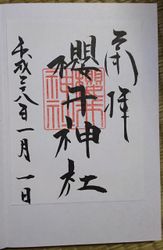 奉拝
櫻井神社
平成二八年一月一日